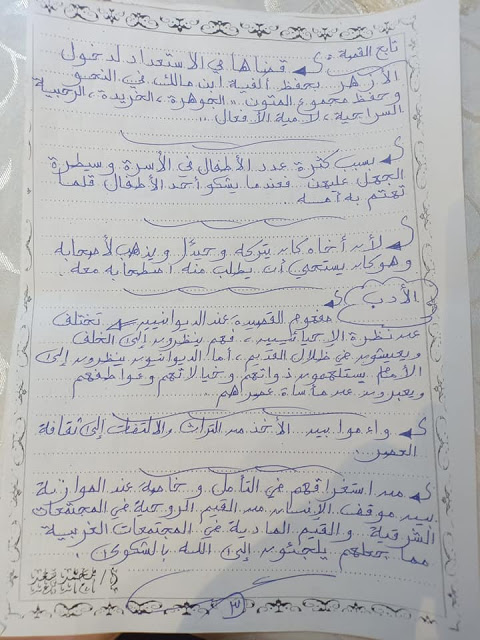 تابع القصة :
قضاها في الاستعداد لدخول
الأزهر بحفظ ألفية ابن مالك في النحو
وحفظ مجموع المتون .. الجوهرة ، الخريدة ، الرحبية
السراجية ، لامية الأفعال ..
بسبب كثرة عدد الأطفال في الأسرة وسيطرة
الجهل عليهن .. فعندما يشكو أحد الأطفال قلما
تهتم به أمه ..
لأن أخاه كان يتركه وحيدًا ويذهب لأصحابه
وهو كان يستحي أن يطلب منه اصطحابه معه ..
الأدب
مفهوم القصيدة عند الديوانيين تختلف
عن نظرة الإحيائيين ، فهم ينظرون إلى الخلف
ويعيشون في ظلال القديم ، أما الديوانيون ينظرون إلى
الأمام يستلهمون ذواتهم وخيالاتهم وعواطفهم
ويعبرون عن مأساة عصرهم ..
واءموا بين الأخذ من التراث والالتفات إلى ثقافة
العصر .
من استغراقهم في التأمل وخاصة عند الموازنة
بين موقف الإنسان من القيم الروحية في المجتمعات
الشرقية والقيم المادية في المجتمعات الغربية
مما جعلهم يلجئون إلى الله بالشكوى .
٣